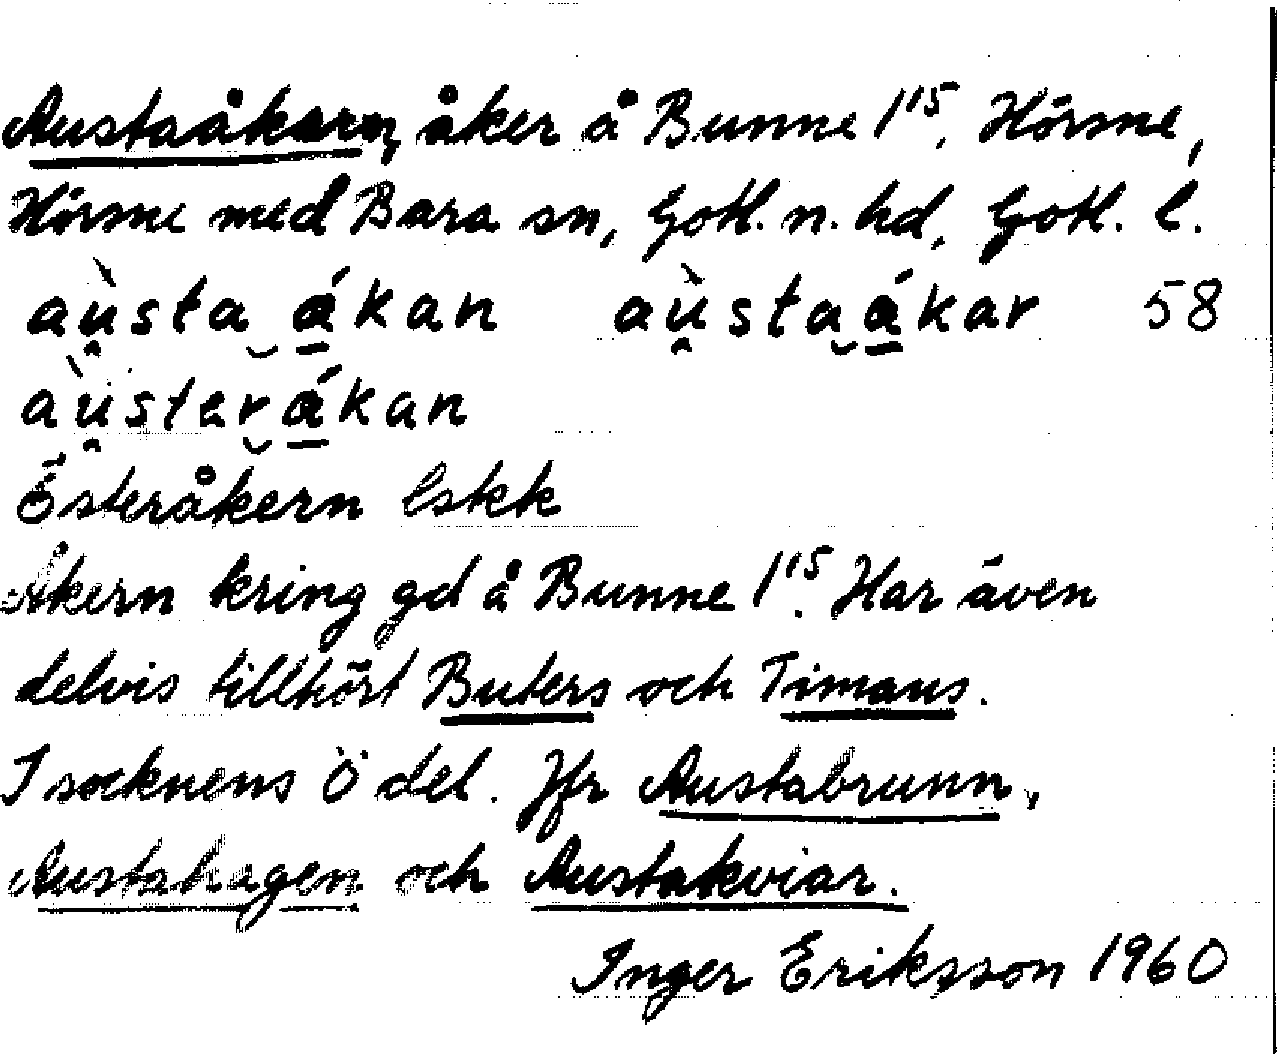 Austaåkern, åker å Bunne 1¹⁵, Hörsne,
Hörsne med Bara sn, Gotl. n. hd, Gotl. l.
aùsta ákan aùstaákar 58
aùsterákan
Österåkern lskk
Åkern kring gd å Bunne 1¹⁵. Har även
delvis tillhört Buters och Timans.
I socknens ö del. Jfr Austabrunn,
Austahagen och Austakviar.
Inger Eriksson 1960